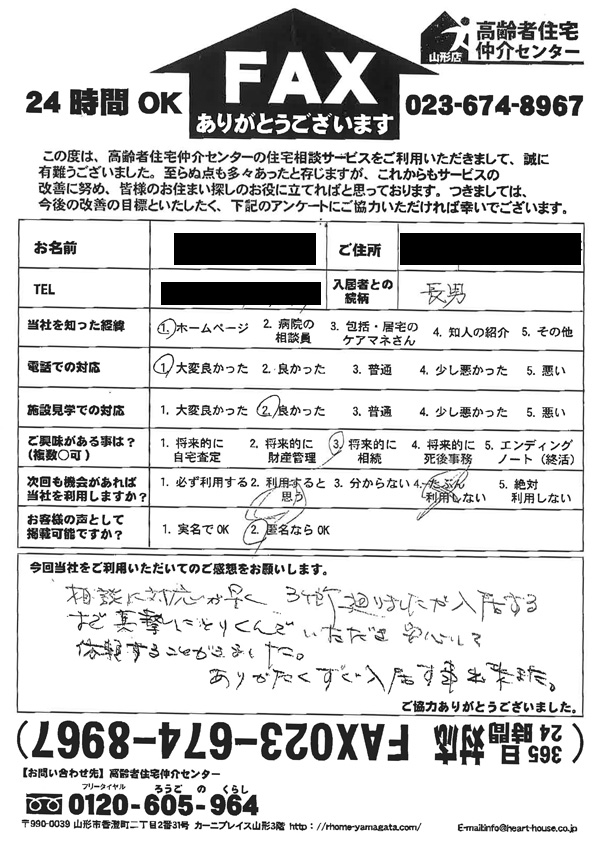 高齢者住宅
仲介センター
山形店
24時間OK
FAX
ありがとうございます
023-674-8967
この度は、高齢者住宅仲介センターの住宅相談サービスをご利用いただきまして、誠に
有難うございました。至らぬ点も多々あったと存じますが、これからもサービスの
改善に努め、皆様のお住まい探しのお役に立てればと思っております。つきましては、
今後の改善の目標といたしたく、下記のアンケートにご協力いただければ幸いでございます。
お名前 ご住所
TEL 入居者との続柄 長男
当社を知った経緯 1. ホームページ 2. 病院の相談員 3. 包括・居宅のケアマネさん 4. 知人の紹介 5. その他
電話での対応 1. 大変良かった 2. 良かった 3. 普通 4. 少し悪かった 5. 悪い
施設見学での対応 1. 大変良かった 2. 良かった 3. 普通 4. 少し悪かった 5. 悪い
ご興味がある事は?(複数○可) 1. 将来的に自宅査定 2. 将来的に財産管理 3. 将来的に相続 4. 将来的に死後事務 5. エンディングノート(終活)
次回も機会があれば当社を利用しますか? 1. 必ず利用する 2. 利用すると思う 3. 分からない 4. たぶん利用しない 5. 絶対利用しない
お客様の声として掲載可能ですか? 1. 実名でOK 2. 匿名ならOK
今回当社をご利用いただいてのご感想をお願いします。
相談に対応が早く 3ヶ所廻りましたが入居する
まで真摯にとりくんでいただき安心して
依頼することができました。
ありがたくすぐい入居す事も出来ました。
ご協力ありがとうございました。
(365日24時間対応 FAX023-674-8967)
【お問い合わせ先】高齢者住宅仲介センター
フリータイヤル ろうごのくらし
0120-605-964
〒990-0039 山形市香澄町二丁目2番31号 カーニープレイス山形3階 http://rhome-yamagata.com/ E-mailinfo@heart-house.co.jp